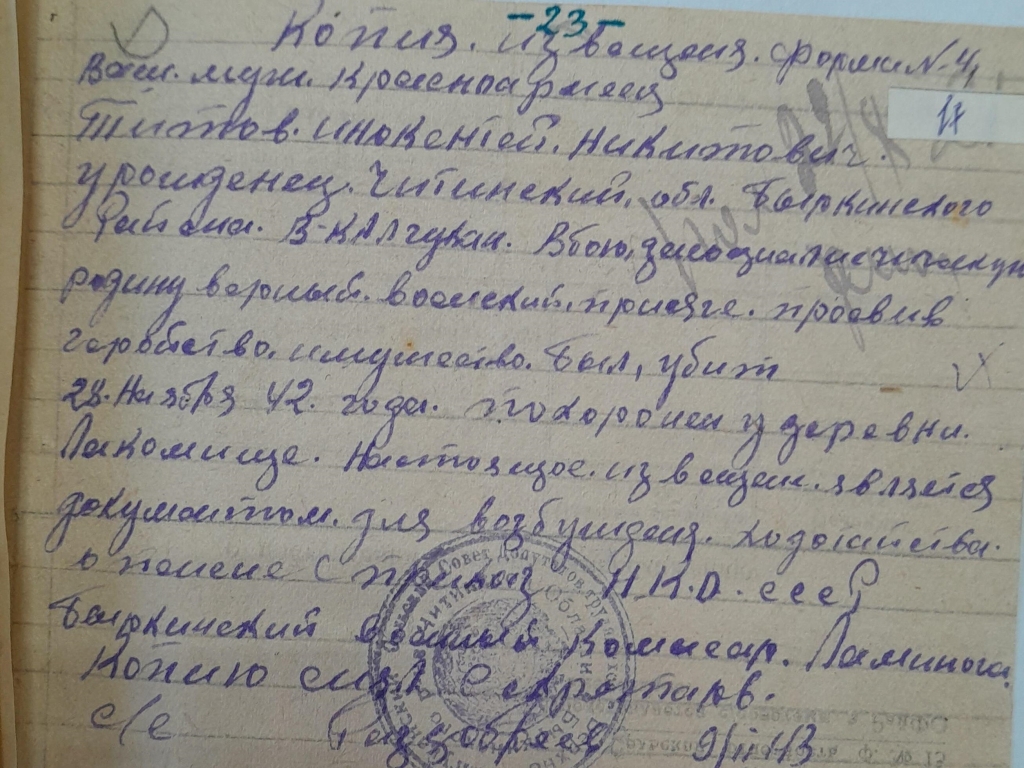 -23-
Копия. извещеня. форми N-4,
17
Ваш. муж. Красноармеец
Титов. инокентей. Никитович.
урожденец. Читинский, обл. Быркинского
Района. В-Калгукан. В бою, за социалистическую
родину верный. воинский. присяге. проевив
геройство. имужество. Был, убит
28. Ноября 42. года. похоронен у деревни.
Лакомище. Настоящое. извещен. является
документом. для возбуждения. ходотайства.
о пенсие с приказ Н.К.О. СССР
Быркинский военный Комисар. Ламинога.
Копию снял Секротарь.
с/с 9/II 43